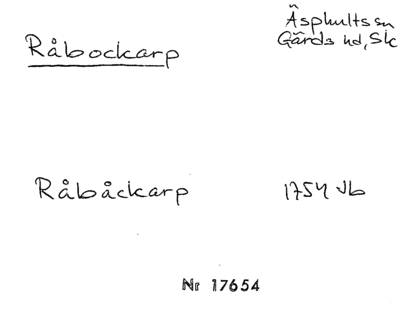 Råbockarp
Äsphults sn
Gärds hd, Sk
Råbåckarp
1754 Jb
Nr 17654